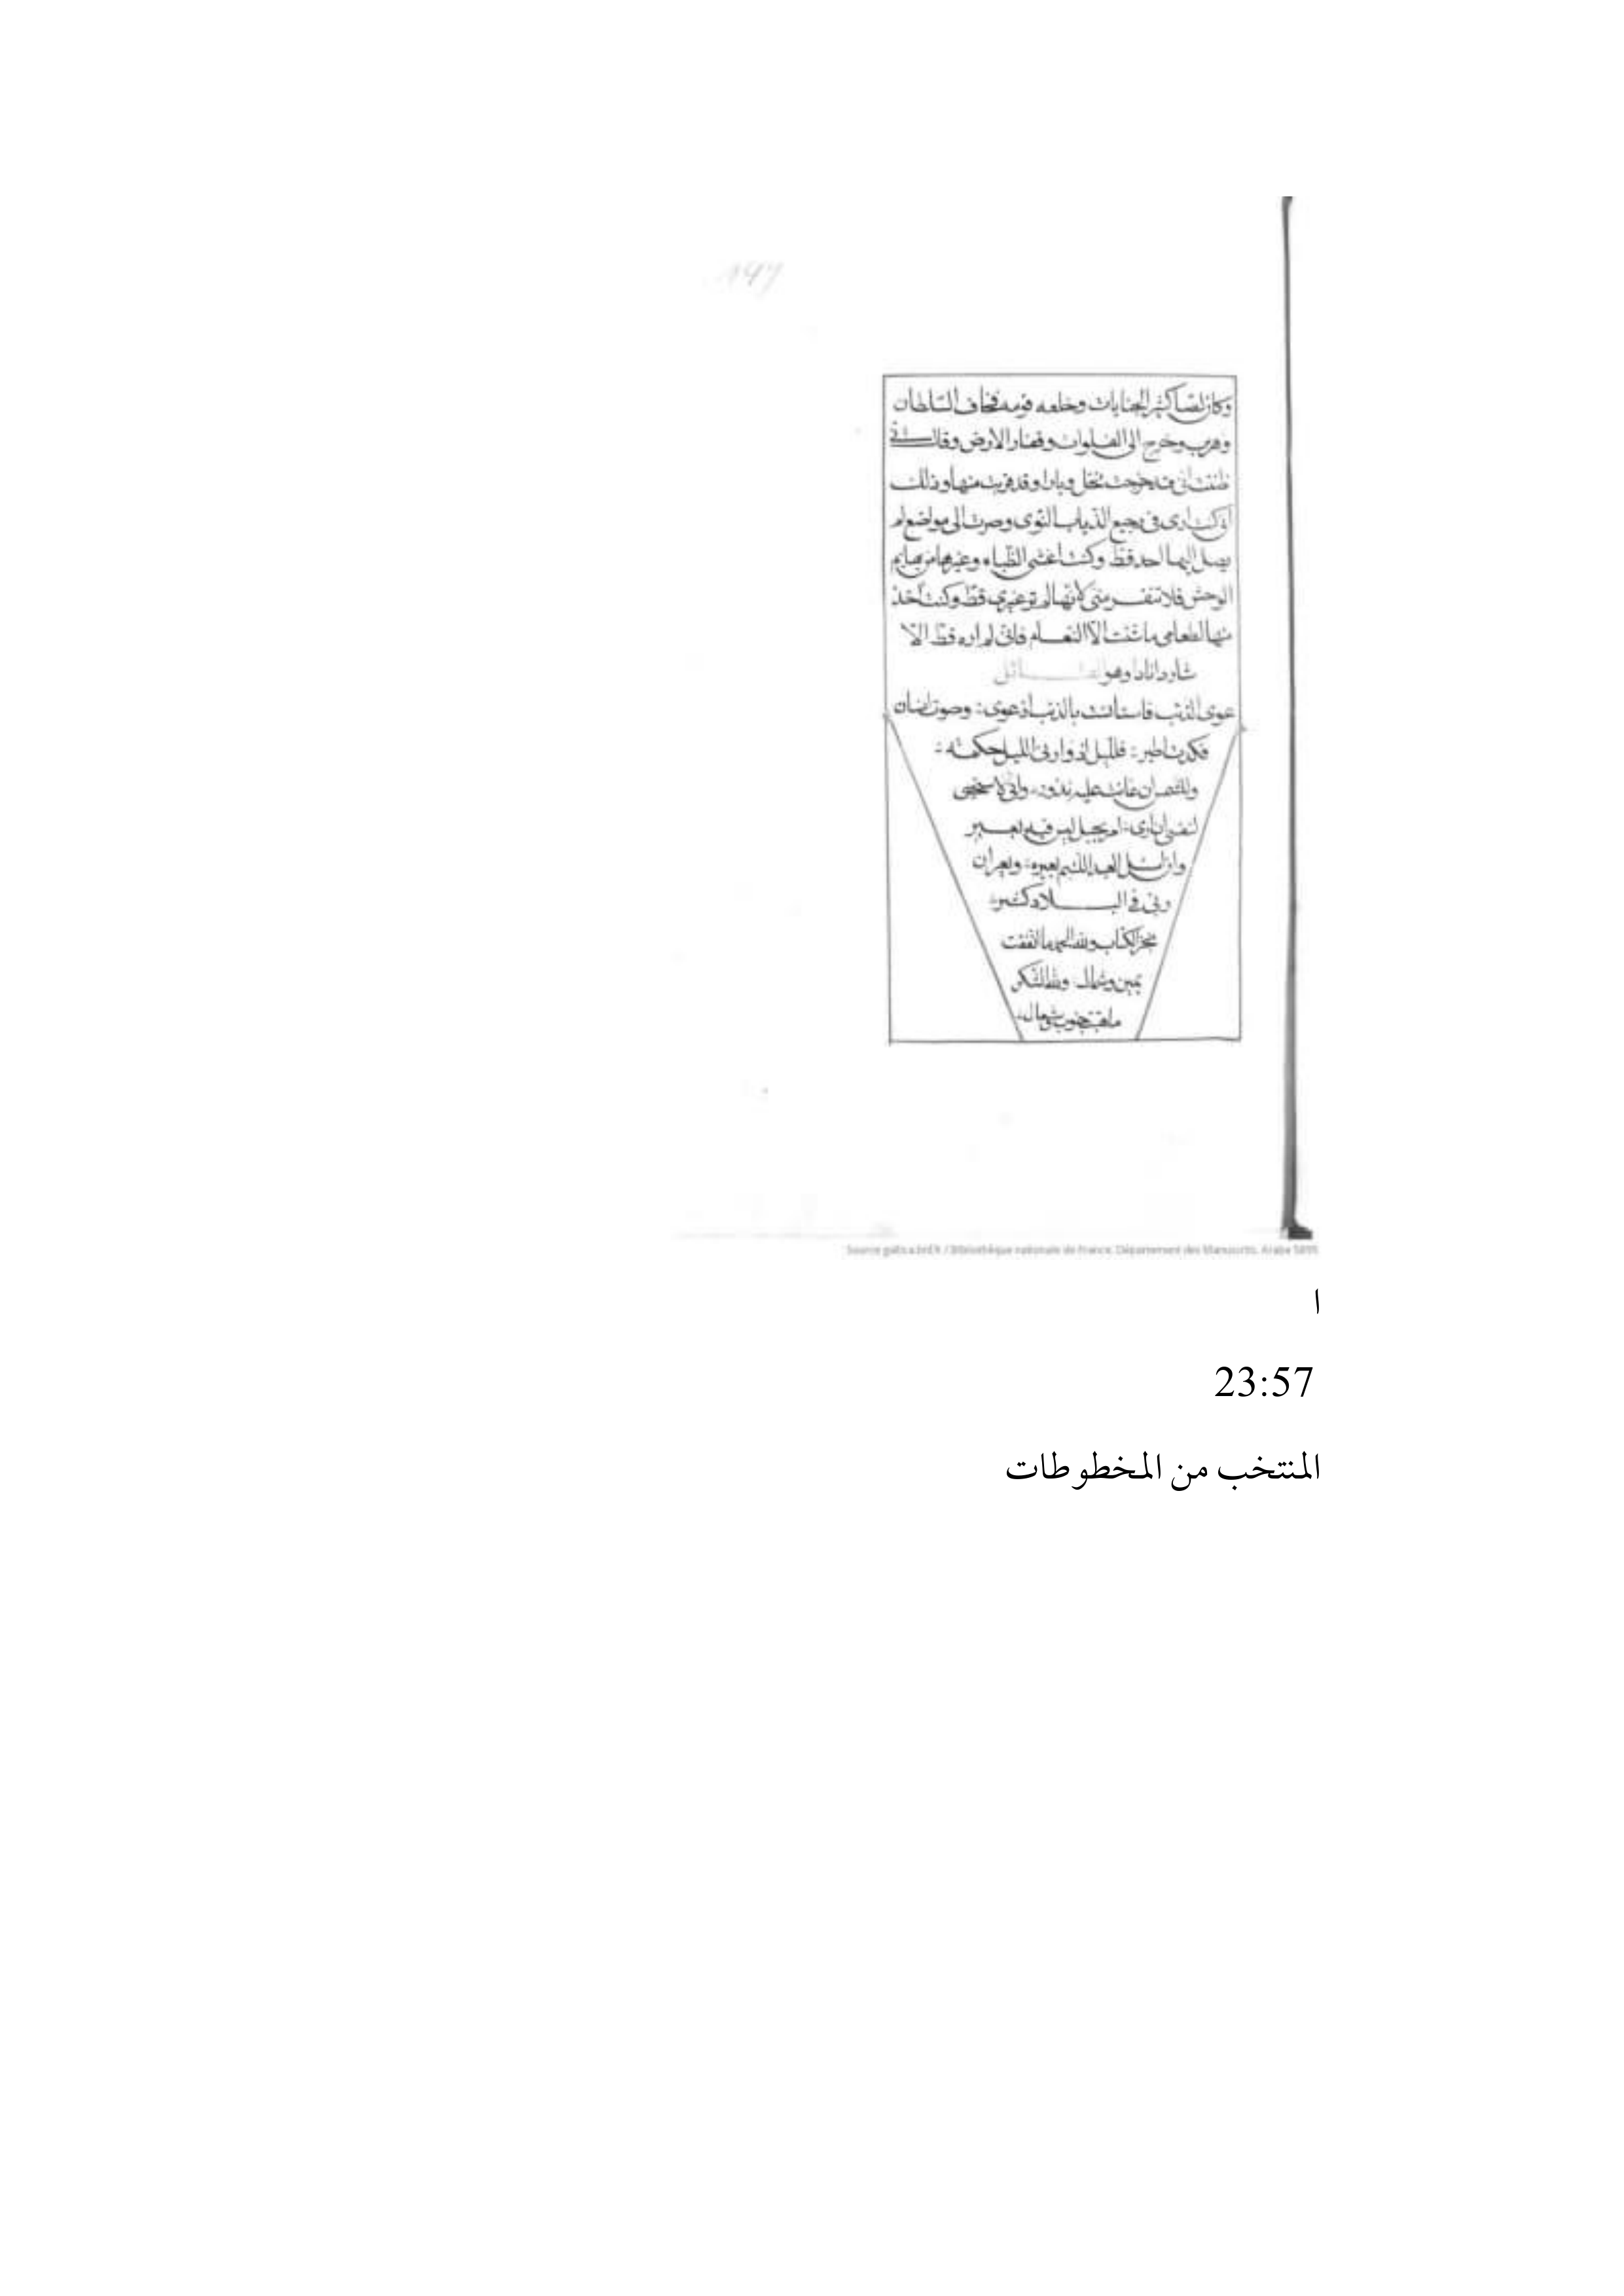 147
وكان لصا كثير الجنايات وخلعه قومه فخاف السلطان
وهرب وخرج الى الفلوات وقفار الارض وقال انى
ظننت انى قد جزت نخل وبارا وقد قربت منها وذلك
انى كنت ارى فى رجيع الذياب النوى وصرت الى مواضع لم
يصل اليها احد قط وكنت اغشى الظباء وغيرها من بهايم
الوحش فلا تنفر منى كانها لم تر غيرى قط وكنت اخذ
منها لطعامى ما شئت الا النعام فانى لم اره قط الا
شاردا نادا وهو القائل
عوى الذئب فاستانست بالذئب اذ عوى : وصوت انسان
فكدت اطير : فلليل اذ وارنى الليل حكمه :
وللشمس ان غابت عليه نذور : وانى لاستحيى
لنفسى ان ارى : امر بحبل ليس فيه بعير
وان اسئل العبد اللئيم بعيره : وبعران
ربى فى البلاد كثير :
نجز الكتاب ولله الحمد ما اتفقت
يمين وشمال ولله الشكر
جنوب وشمال
Source gallica.bnf.fr / Bibliothèque nationale de France. Département des Manuscrits. Arabe
ا
23:57
المنتخب من المخطوطات